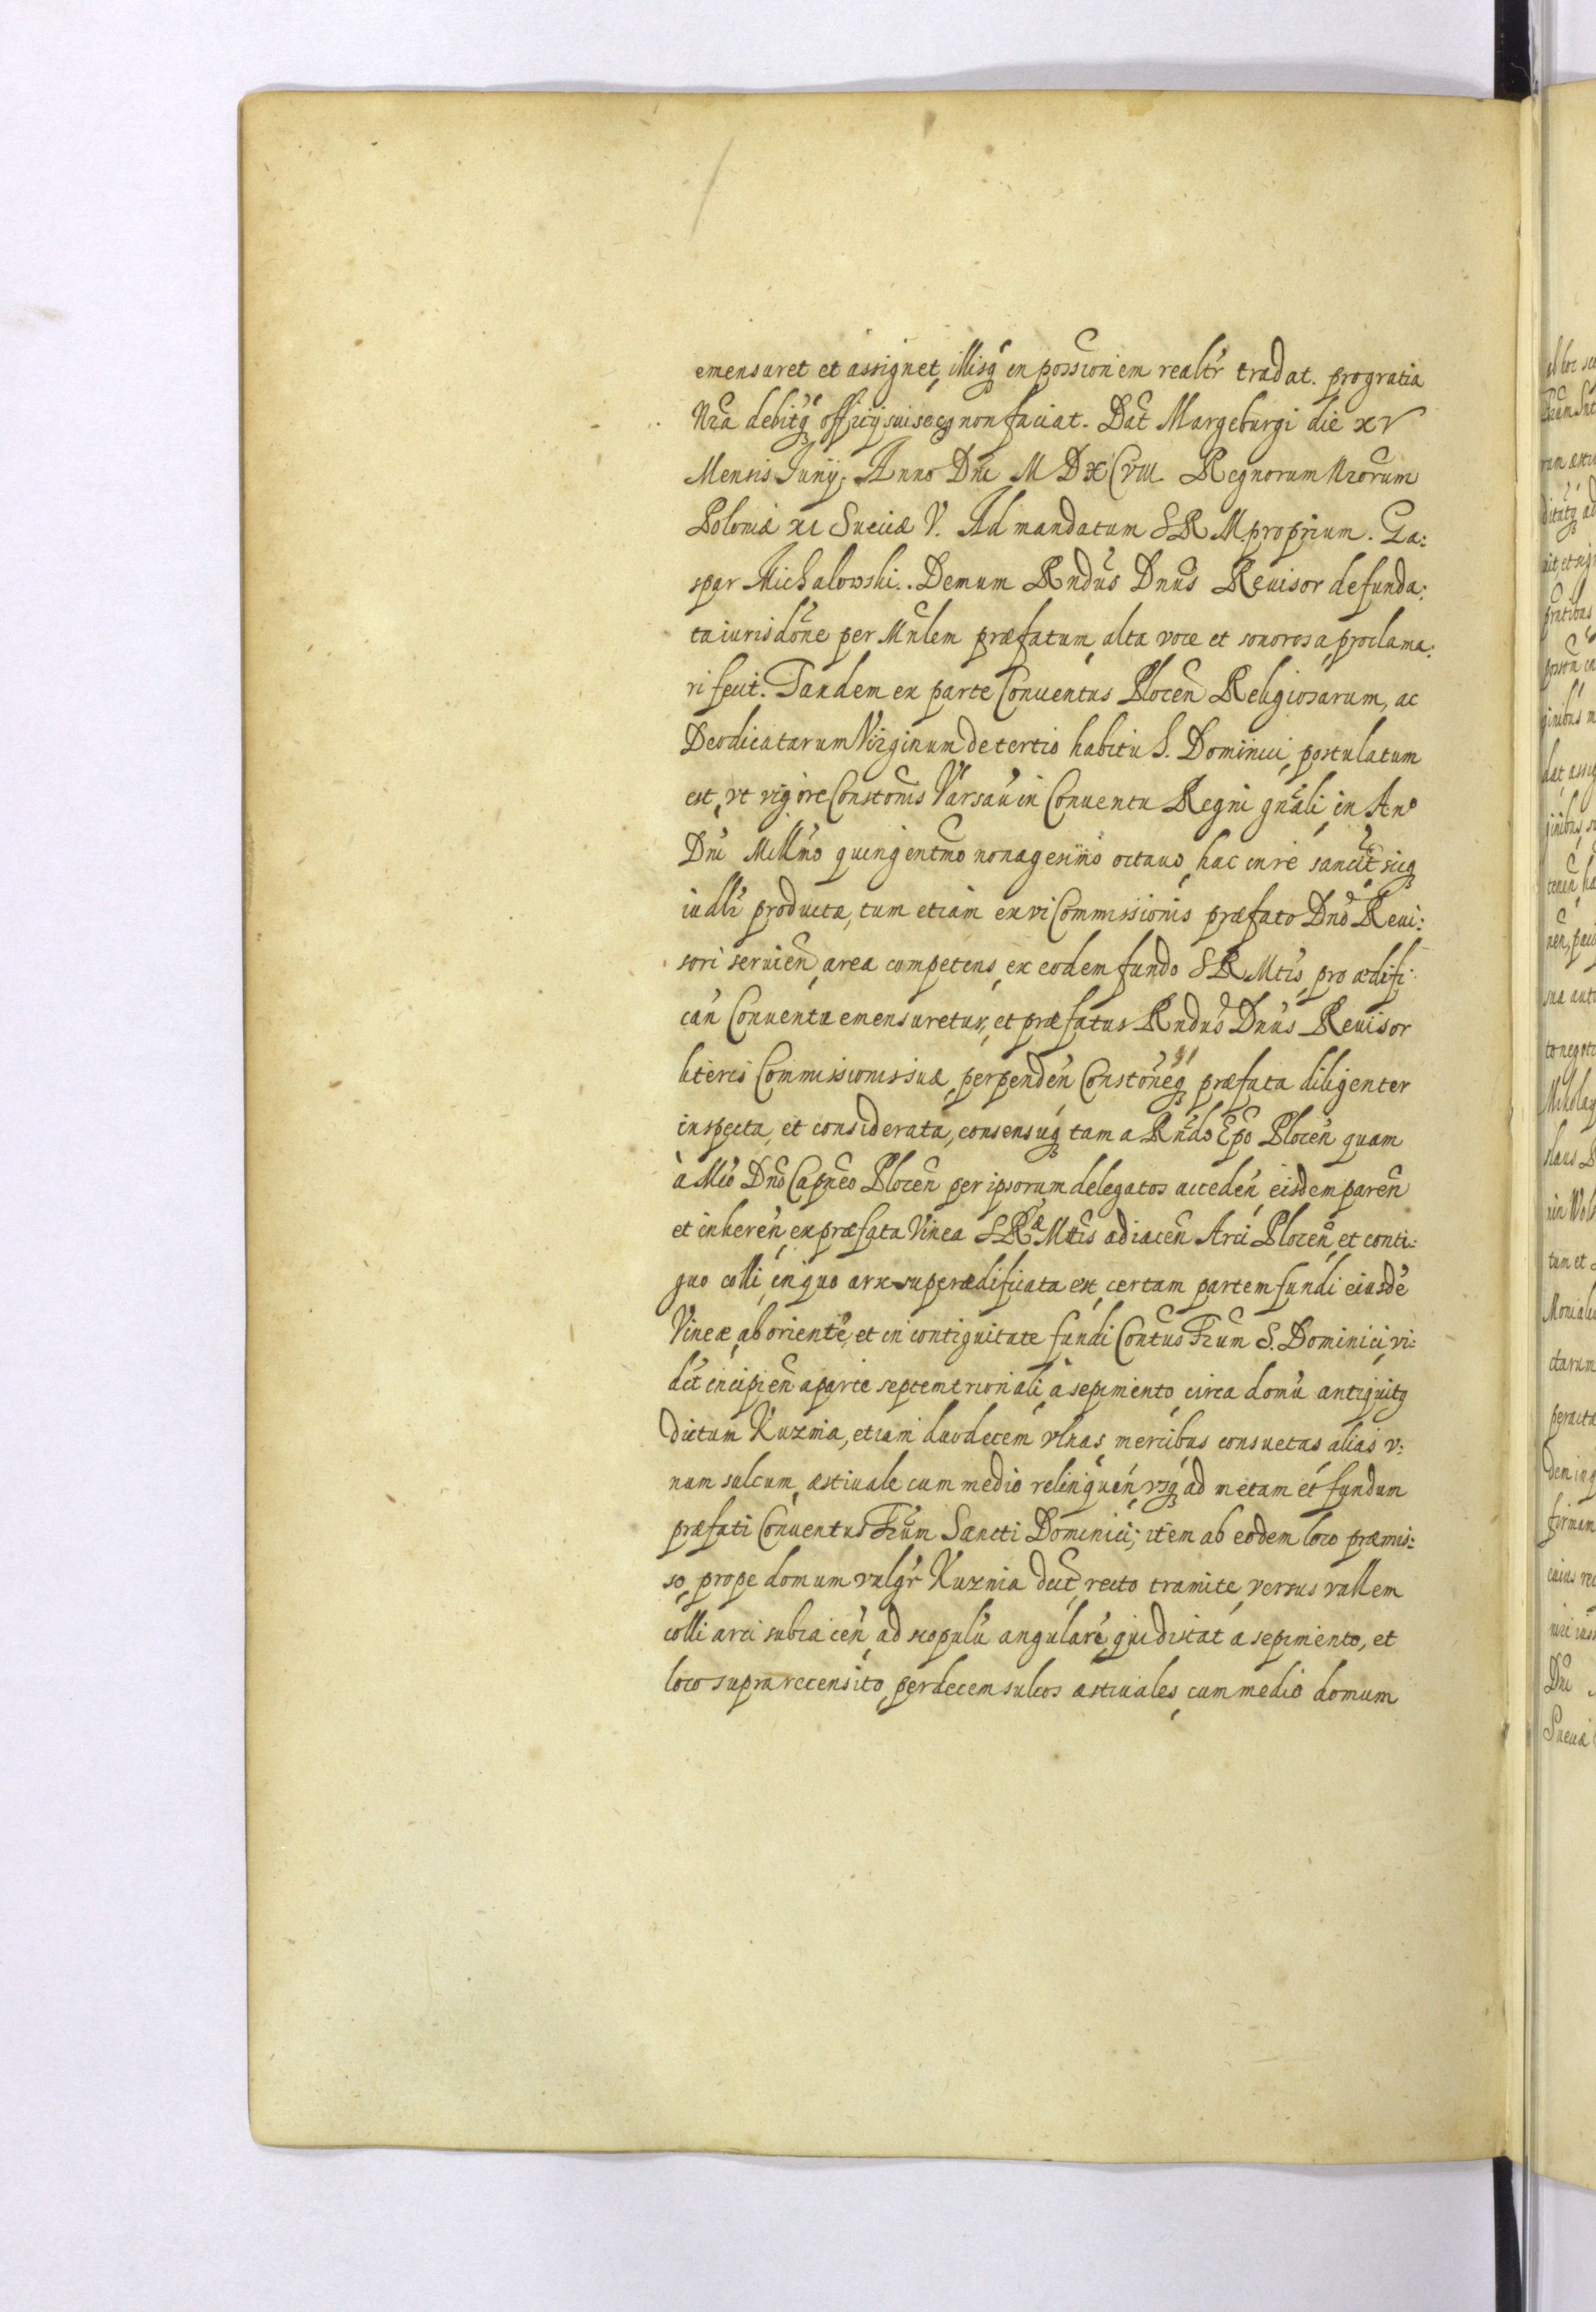 emensuret et assignet, illisq́ in possionem realtr tradat. pro gratia
Nra debitq́ officij sui secq non faciat. Dat Margeburgi die XV
Mensis Junij. Anno Dni M D XCVIII. Regnorum Nrorum
Poloniæ XI Sueciæ V. Ad mandatum SRM proprium. Ga:
spar Michalowski.. Demum Rndus Dnus Reuisor de funda:
ta iurisdone per Mnlem præfatum, alta voce et sonorosa, proclama:
ri fecit. Tandem ex parte Conuentus Plocen Religiosarum, ac
Deodicatarum Virginum de tertio habitu S. Dominici, postulatum
est, vt vigore Constonis Varsau in Conuentu Regni gnali, in Ano
Dni Millmo quingentmo nonagesimo octauo, hac in re sancit, sicq
iudlr producta, tum etiam ex vi Commissionis præfato Dno Reui:
sori seruien, area competens, ex eodem fundo SRMtis, pro ædifi:
can Conuentu emensuretur, et præfatus Rndus Dnus Reuisor
literis Commissionis suæ, perpenden Constoneq præfata diligenter
inspecta, et considerata, consensuq́ tam a Rndo Epo Plocen quam
à Mco Dno Capneo Plocen per ipsorum delegatos acceden, eisdem paren
et inheren, ex præfata Vinea SRæ Mttis adiacen Arci Plocen, et conti:
guo colli, in quo arx superædificata est, certam partem fundi eiusdē
Vineæ, ab oriente, et in contiguitate fundi Contus Frum S. Dominici, vi:
dlt incipien a parte septemtrionali, a sepimento, circa domū antiquitq
dictum Kuznia, etiam duodecem vlnas, mercibus consuetas, alias v:
num sulcum, æstiuale cum medio relinquen, vsq́ ad metam et fundum
præfati Conuentus Frum Sancti Dominici; item ab eodem loco præmis:
so, prope domum vulgr Kuznia dict, recto tramite, versus vallem
colli arci subiacen, ad scopulū angularē, qui distat a sepimento, et
loco supra recensito, per decem sulcos æstiuales, cum medio domum